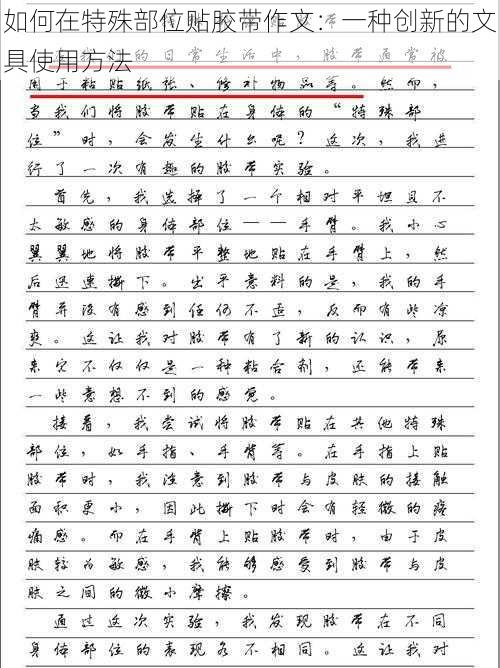 如何在特殊部位贴胶带作文：一种创新的文
具使用方法
的日常生活中，胶带通常被
用于粘贴纸张、修补物品等。然而，
当我们将胶带贴在身体的“特殊部
位”时，会发生什么呢？这次，我进
行了一次有趣的胶带实验。
首先，我选择了一个相对平坦且不
太敏感的身体部位——手臂。我小心
翼翼地将胶带平整地贴在手臂上，然
后迅速撕下。出乎意料的是，我的手
臂并没有感到任何不适，反而有些凉
爽。这让我对胶带有了新的认识，原
来它不仅仅是一种粘合剂，还能带来
一些意想不到的感觉。
接着，我尝试将胶带贴在其他特殊
部位，如手指、手背等。在手指上贴
胶带时，我注意到胶带与皮肤的接触
面积更小，因此撕下时会有轻微的疼
痛感。而在手背上贴胶带时，由于皮
肤较为敏感，我能够感受到胶带与皮
肤之间的微小摩擦。
通过这次实验，我发现胶带在不同
身体部位的表现各不相同。这让我对